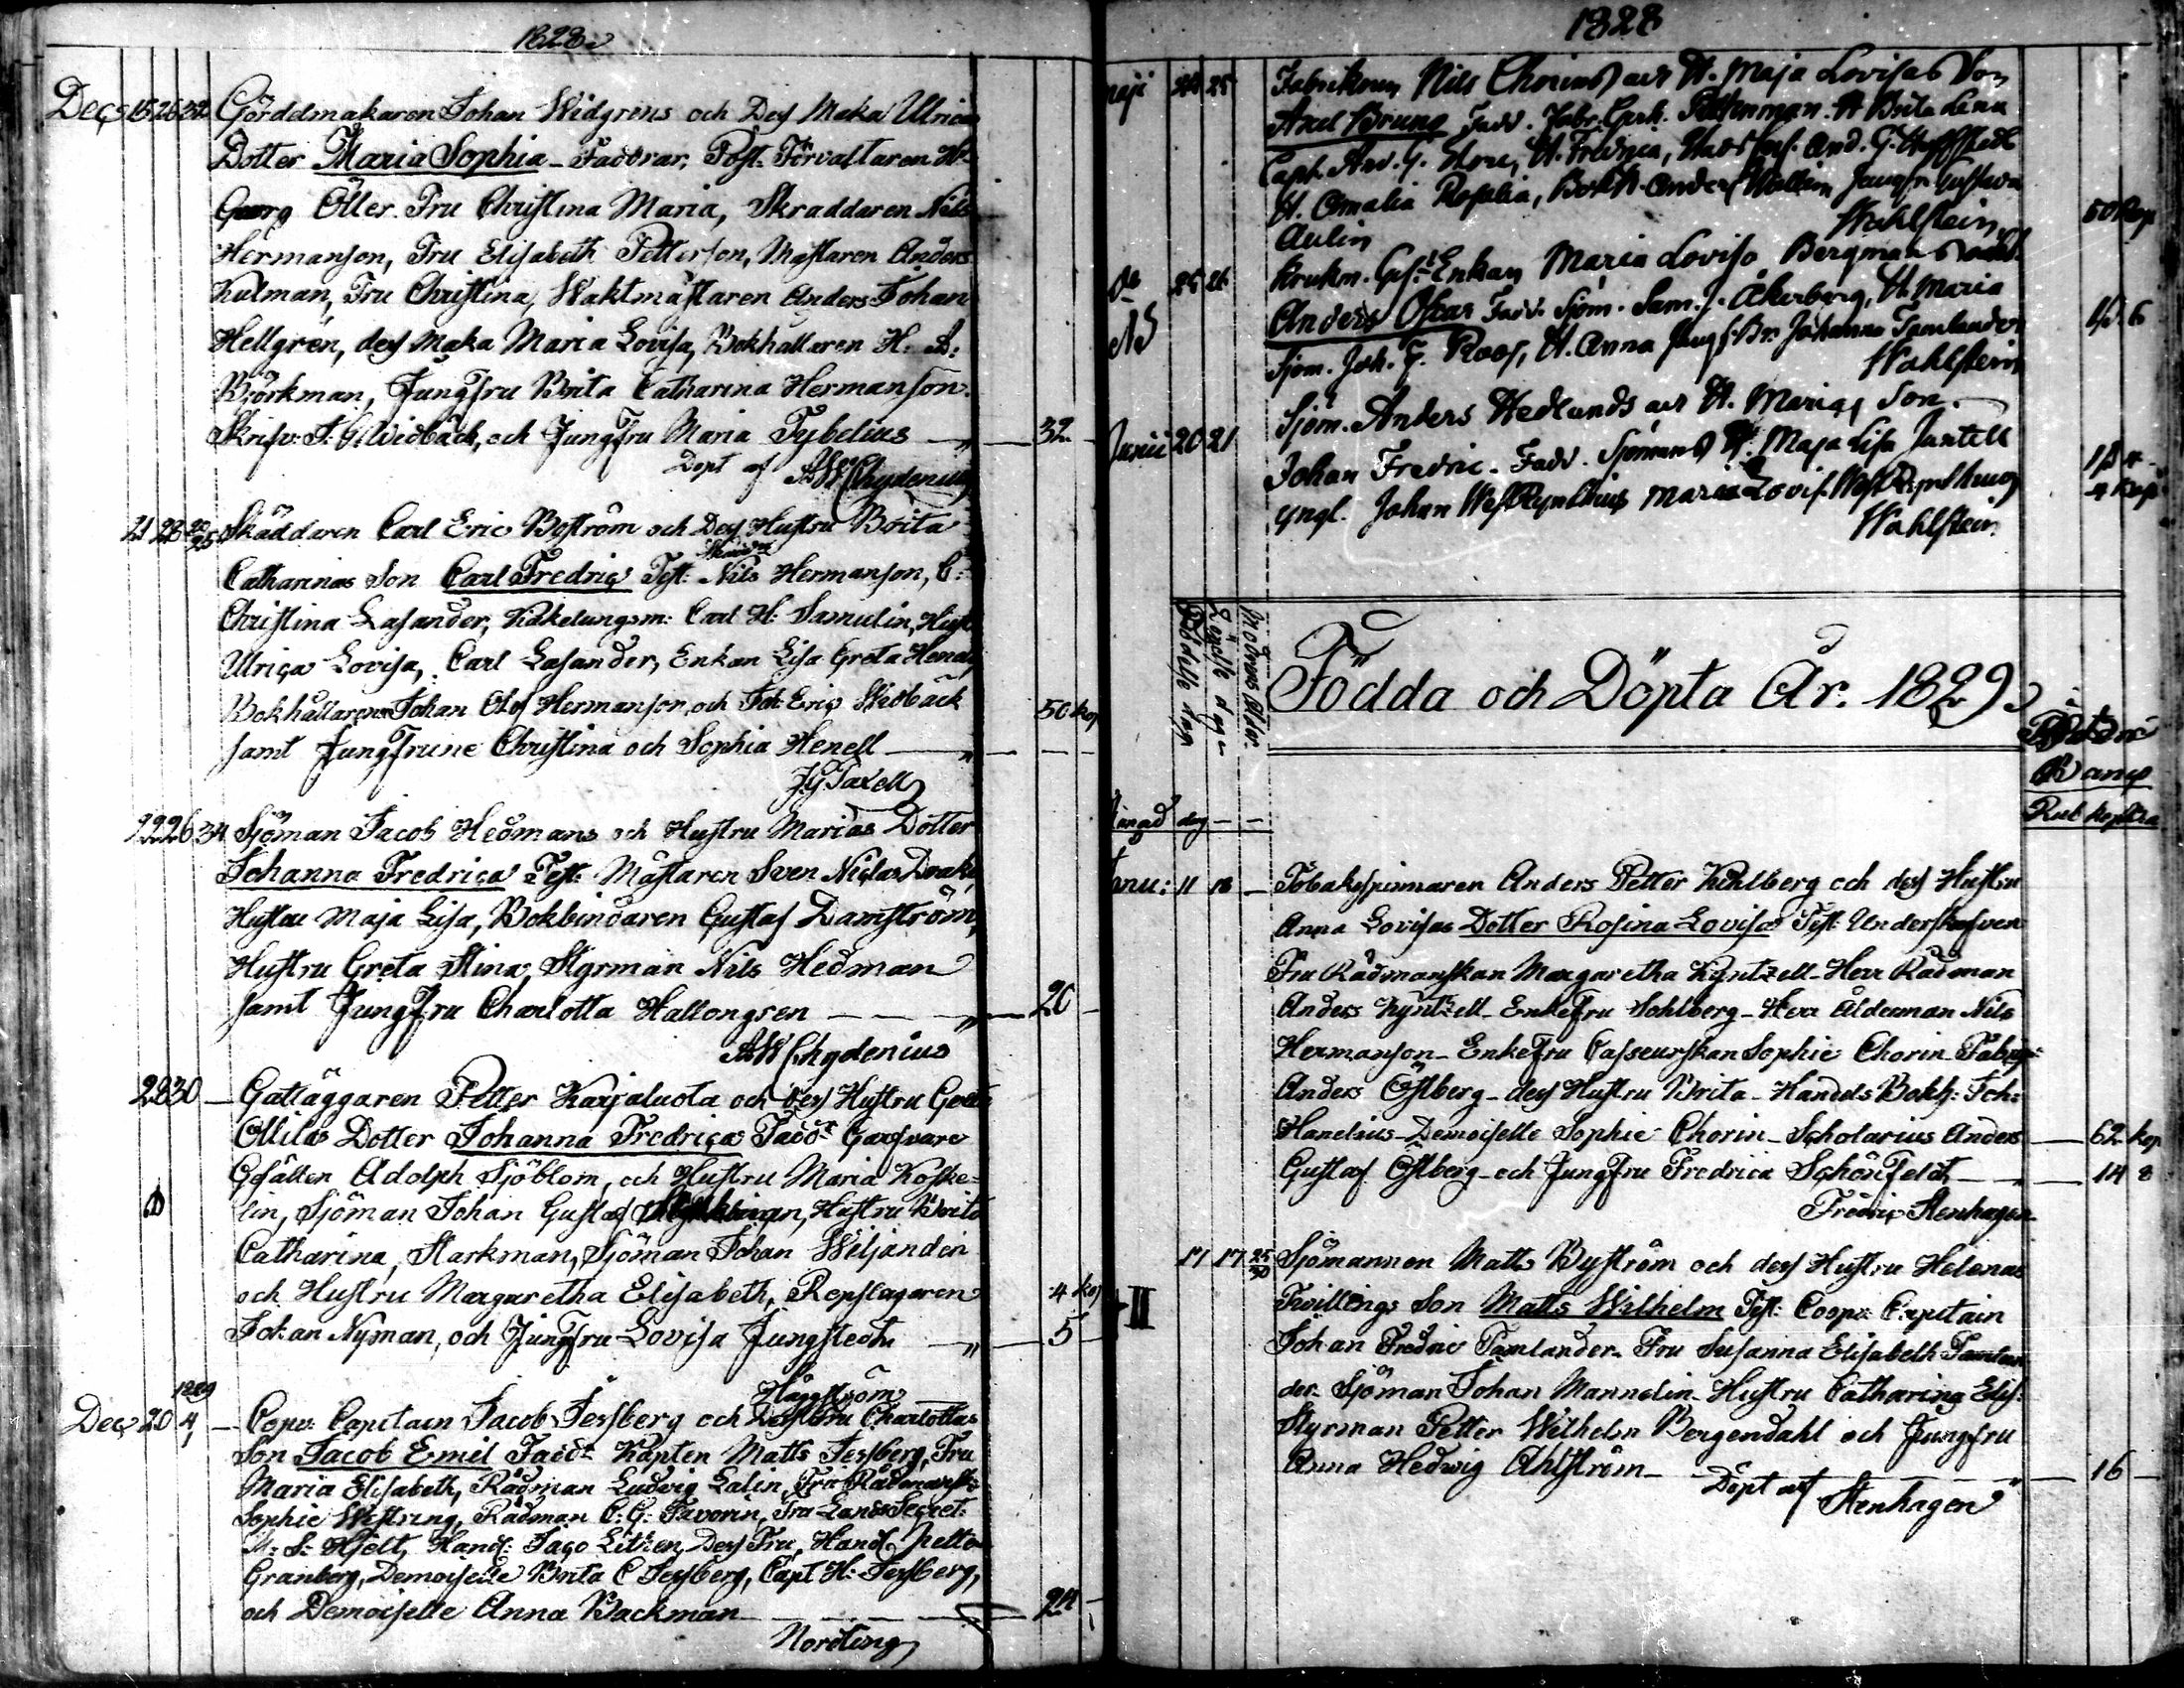 1828
Decs 15 26 32 Gördelmakaren Johan Widgrens och Dess Maka Ulricas
Dotter Maria Sophia - Faddrar, Post-Förvaltaren H
Georg Öller. Fru Christina Maria, Skraddaren Nils
Hermanson, Fru Elisabeth Petterson, Mästaren Anders
Kulman, Fru Christina, Waktmästaren Anders Johan
Hellgren, dess Maka Maria Lovisa, Bokhållaren H:
Björkman, Jungfru Brita Catharina Hermanson.
Skrifv: Widbäck, och Jungfru Maria Tybelius — 32
Döpt af AWChydenius
21 28 Skäddaren Carl Eric Boström och Dess Hustru Brita
Catharinas Son Carl Fredric Test: Nils Hermanson,
Christina Lasander, Carl H: Samulin, Hust
Ulrica Lovisa, Carl Lasander, Enkan Lisa Greta
Bokhållaren Johan Olof Hermanson och Joh: Eric Widbäck 50 kop
samt Jungfrune Christina och Sophia Henell
JG Taxell
22 26 34 Sjöman Jacob Hedmans och Hustru Marias Dotter
Johanna Fredrica Test: Mästaren Sven Niclas
Hustru Maja Lisa, Bokbindaren Gustaf Damström,
Hustru Greta Stina, Styrman Nils Hedman
samt Jungfru Charlotta Hallongren — 20
AWChydenius
28 30 — Gatläggaren Petter Karjaluota och Dess Hustru
Dotter Johanna Fredrica Fadd: Garfvare
Gesällen Adolph Sjöblom, och Hustru Maria Koske=
lin, Sjöman Johan Gustaf Hustru Brita
Catharina, Starkman, Sjöman Johan Wiljanden
och Hustru Margaretha Elisabeth, Repslagaren 4 kop
Johan Nyman, och Jungfru Lovisa Jungstedt — 5
Häggström
1829
Dec 20 4 — Copv: Capitain Jacob Jessberg och Dess Fru Charlottas
Son Jacob Emil Fadd: Kapten Matts Jessberg, Fru
Maria Elisabeth, Rådman Ludvig Lalin, Fru Rådmansk:
Sophie Westring, Rådman C: G: Favorin, Fru Lands Secret:
Hjelt, Handl: Litzen, Dess Fru, Handl Petter
Granberg, Demoiselle Brita C Jessberg, Capt H: Jessberg,
och Demoiselle Anna Backman — 24
Nordling
1828
Maji 25 Nils Chorins och H. Maja Lovisas Son
Axel Bruno Fadd. H Brita Lena
Capt. H. Fredrica,
H. Amalia Rosalia, Jungfr Gustava
Aulin Wahlstein 50 kop
25 26 Enkan Maria Lovisa Bergmans
Anders Oskar Fadd. Sjöm. Sam. J. Åkerberg, H. Maria
Sjöm. Joh. F. Roos, H. Anna Johanna Tamlander
Wahlstein
Junii 20 21 Sjöm. Anders Hedlunds och H. Marias Son
Johan Fredric. Fadd. Sjöman H. Maja Lisa
yngl. Johan Maria Lovis.
Wahlstein
Födelse dag
Döpelse dag
Modrens ålder
Födda och Döpta År. 1829.
Banco
Rub kopka
Månad dag — —
Janu: 11 18 — Tobaksspinnaren Anders Petter Kihlberg och dess Hustru
Anna Lovisas Dotter Rosina Lovisa Test: Underskrifven
Fru Rådmanskan Margaretha Kyntzell - Herr Rådman
Anders Kyntzell - Enkefru Sohlberg - Herr Ålderman Nils
Hermanson - Enkefru Casseurskan Sophie Chorin - Fabrigs:
Anders Östberg - dess Hustru Brita - Handels Bokh: Joh:
Hanelius - Demoiselle Sophie Chorin - Scholarius Anders — 62 kop
Gustaf Östberg - och Jungfru Fredrica Schönfeldt — 14 8
Fredric Stenhagen
11 17 25/30 Sjömannen Matts Byström och dess Hustru Helenas
Tvillings Son Matts Wilhelm Test: Coopv: Capitain
Johan Fredric Tamlander - Fru Susanna Elisabeth Tamlan
der - Sjöman Johan Mannelin - Hustru Catharina Elis:
Styrman Petter Wilhelm Bergendahl och Jungfru
Anna Hedwig Ahlström — 16
Döpt af Stenhagen